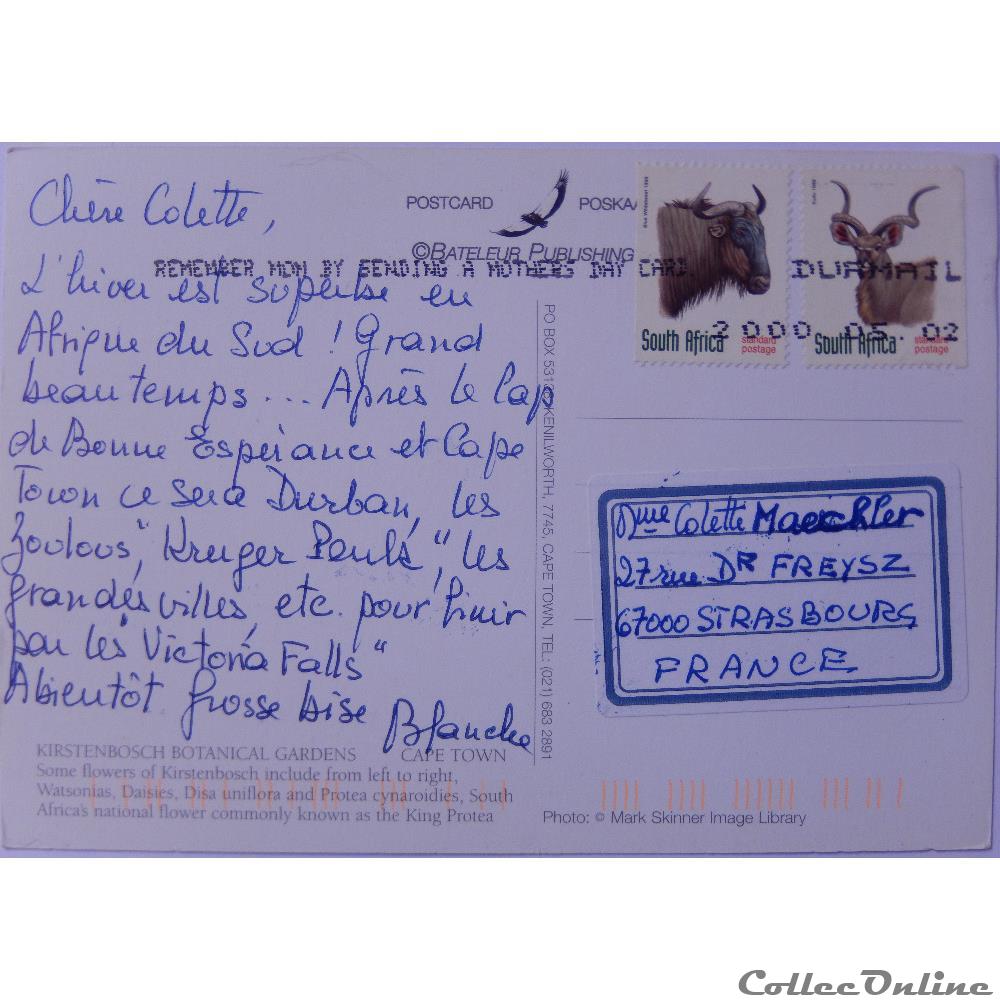 Chère Colette,
L'hiver est superbe en
Afrique du Sud ! Grand
beau temps ... Après le Cap
de Bonne Espérance et Cape
Town ce sera Durban, les
Zoulous, "Kruger Park", les
grandes villes, etc. pour finir
par les "Victoria Falls"
Abientôt grosse bise Blanche
POSTCARD POSKAA
©BATELEUR PUBLISHING
REMEMBER MOM BY SENDING A MOTHERS DAY CARD.
DURMAIL
2000 05. 02
Blue Wildebeest 1998
South Africa standard
postage
Kudu 1998
South Africa standard
postage
KENILWORTH, 7745, CAPE TOWN, TEL: (021) 683 2891
PO BOX 531
Mme Colette Maechler
27 rue DR FREYSZ
67000 STRASBOURG
FRANCE
KIRSTENBOSCH BOTANICAL GARDENS CAPE TOWN
Some flowers of Kirstenbosch include from left to right,
Watsonias, Daisies, Disa uniflora and Protea cynaroidies, South
Africa's national flower commonly known as the King Protea
Photo: © Mark Skinner Image Library
CollecOnline